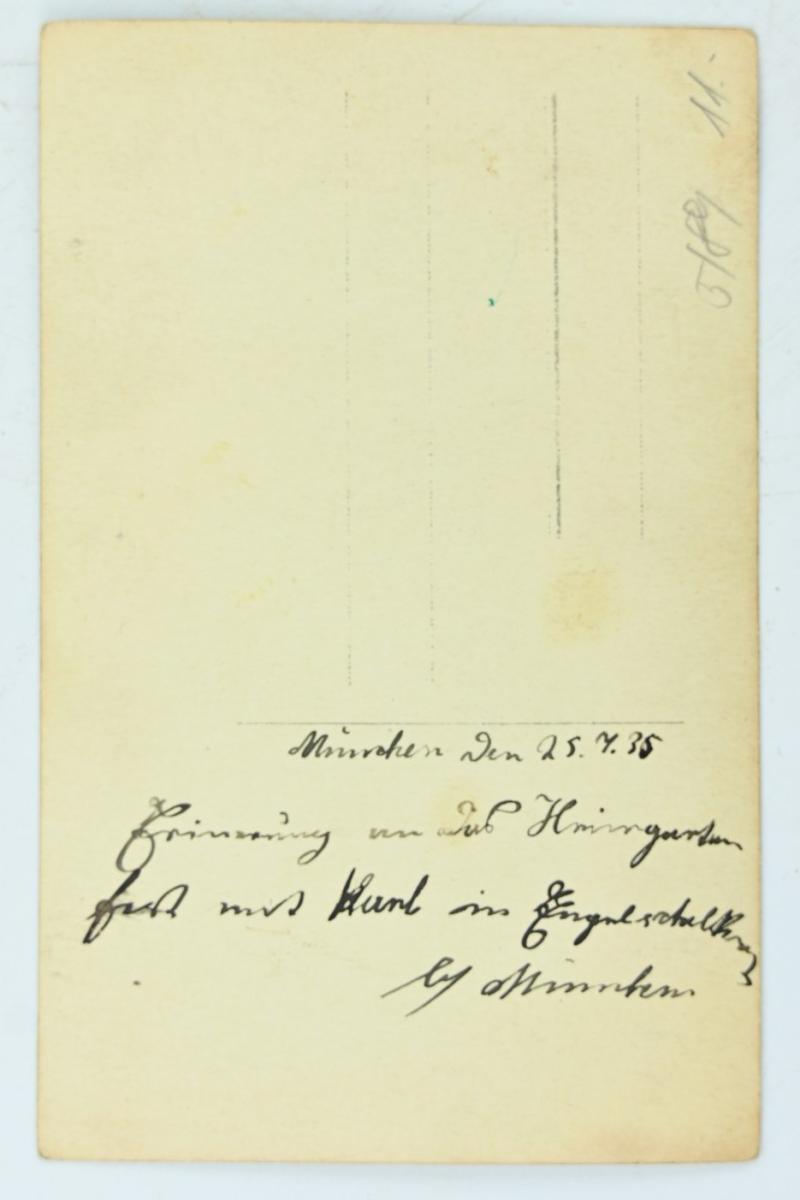 11.
5/89
München den 25.7.35
Erinnerung an das Heimgarten
fest mit Karl in Englschalking
b/ München.